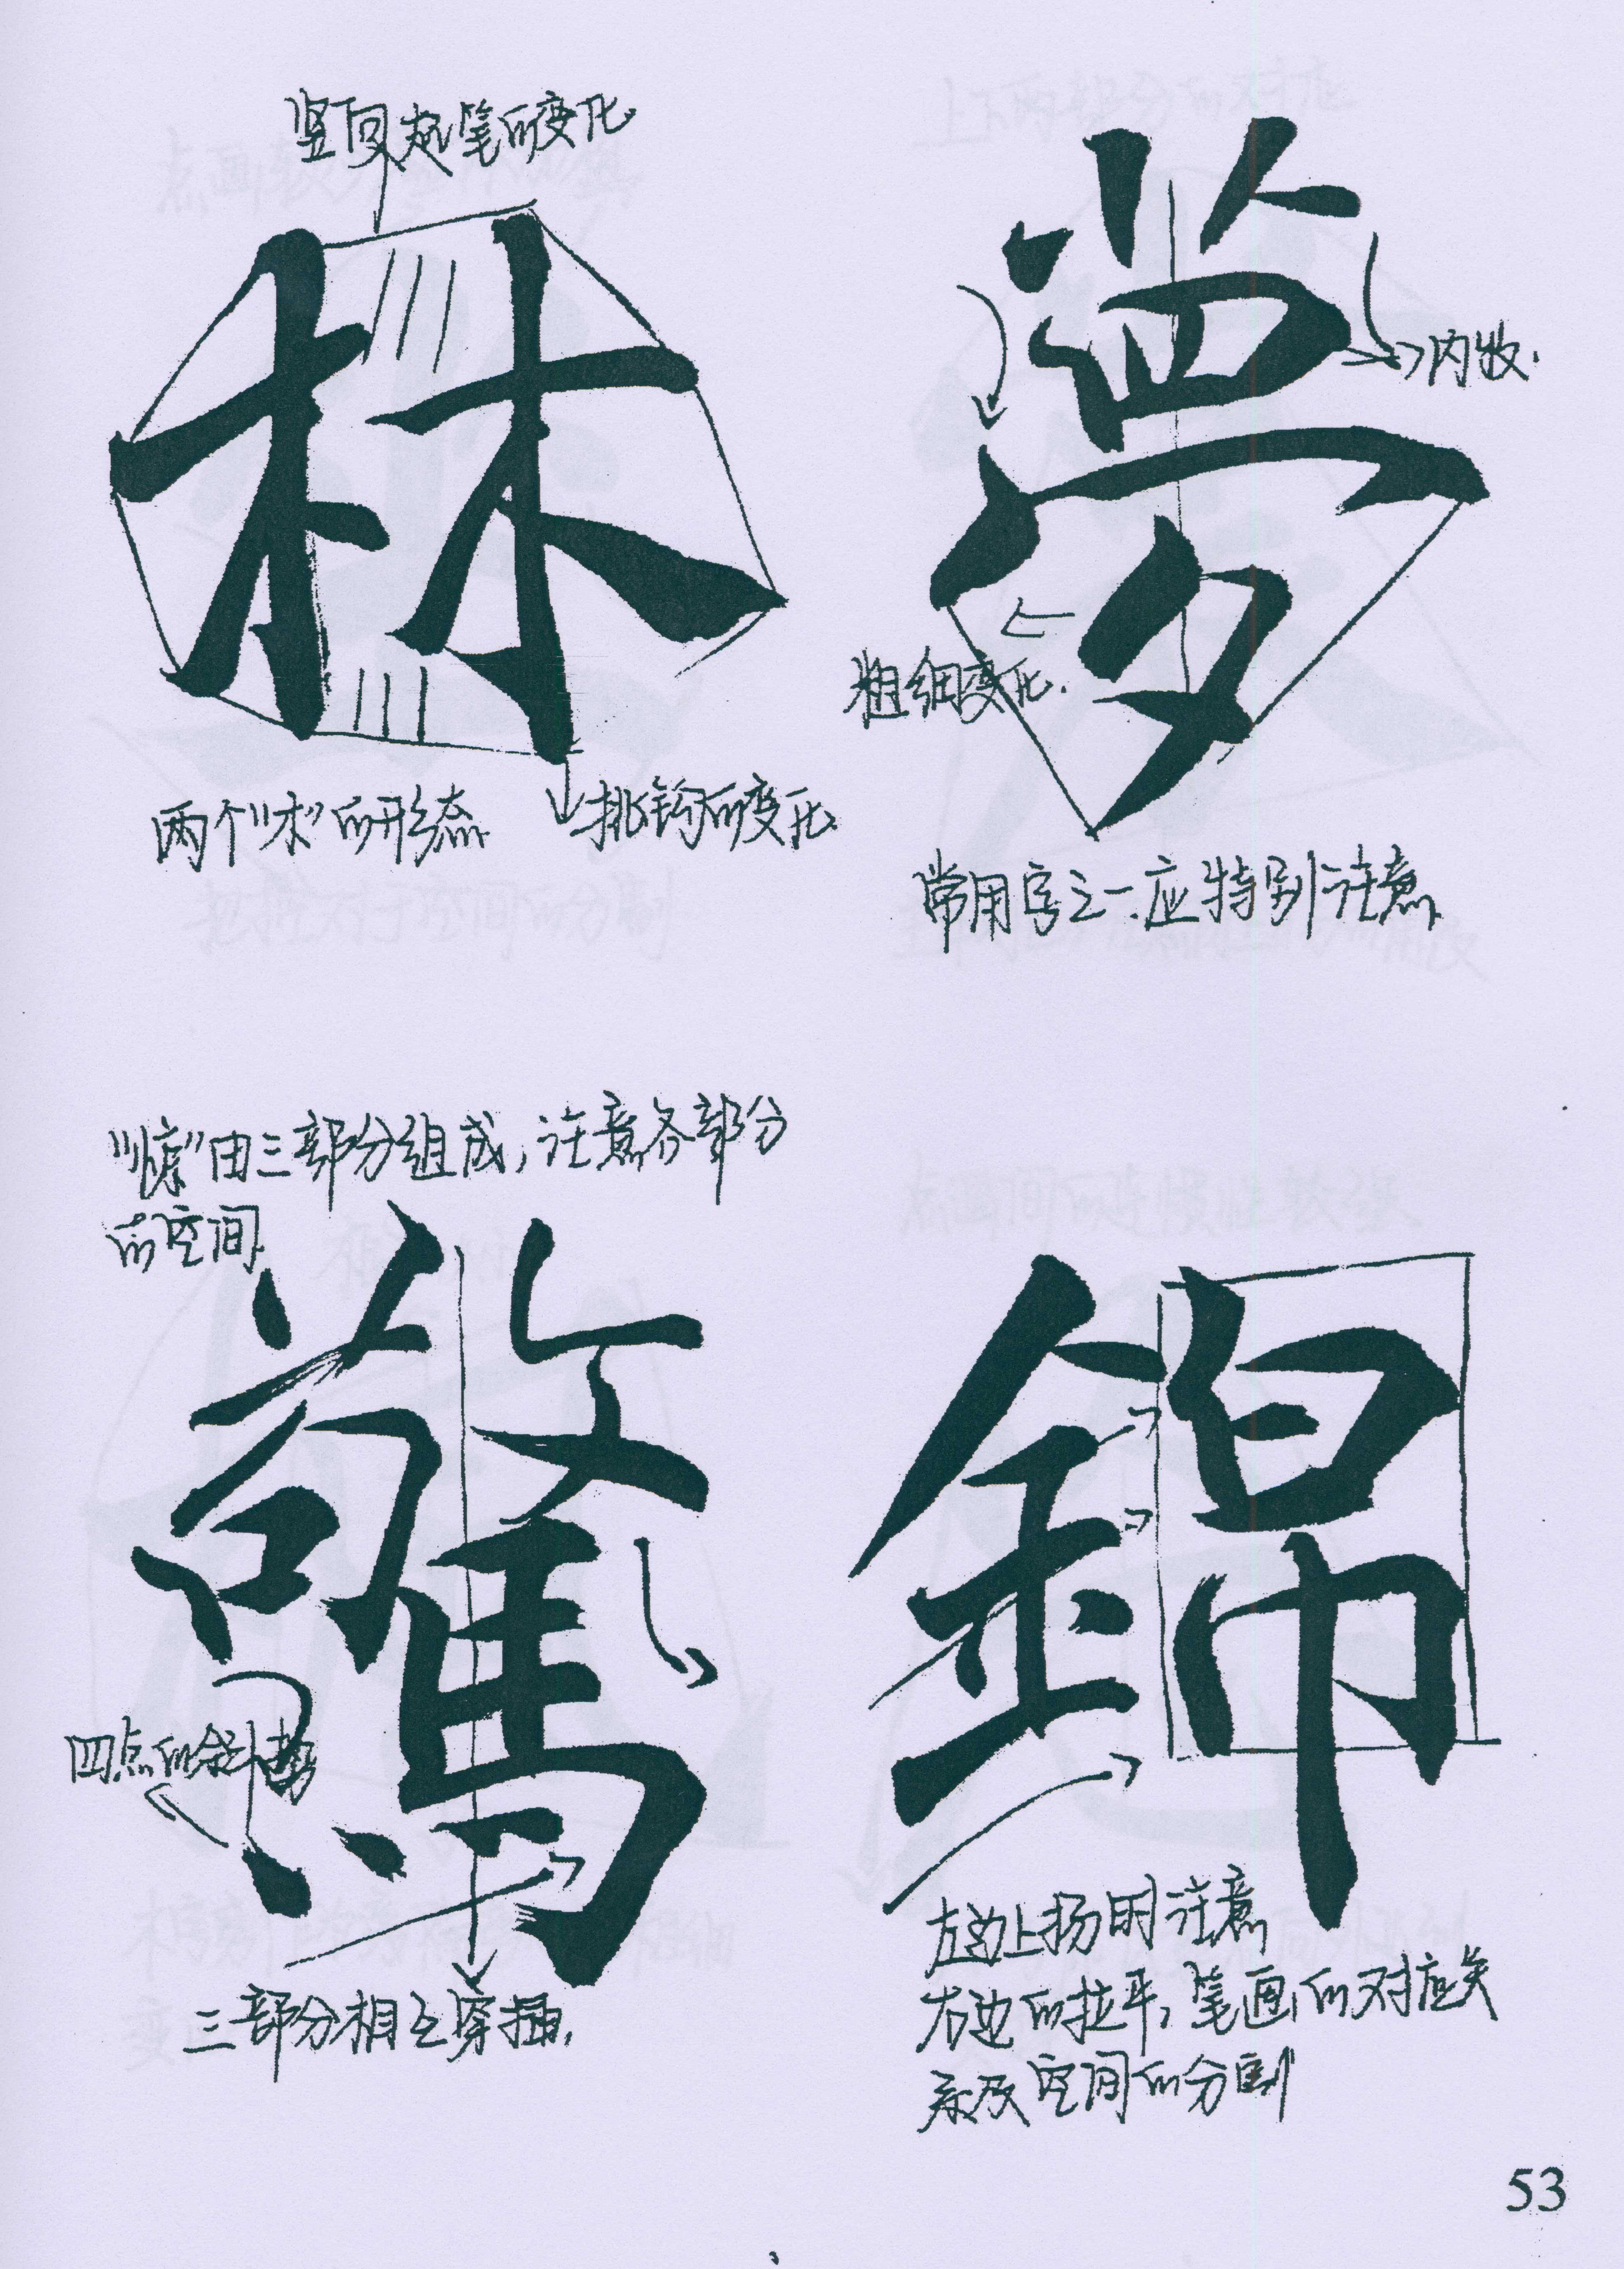 竖向起笔的变化
林
两个“木”的形态
挑钩的变化
夢
内收.
粗细变化.
常用字之一.应特别注意
“惊”由三部分组成,注意各部分
的空间.
驚
四点的斜势
三部分相互穿插,
錦
左边上扬时注意
右边的拉平,笔画的对应关
系及空间的分割
53